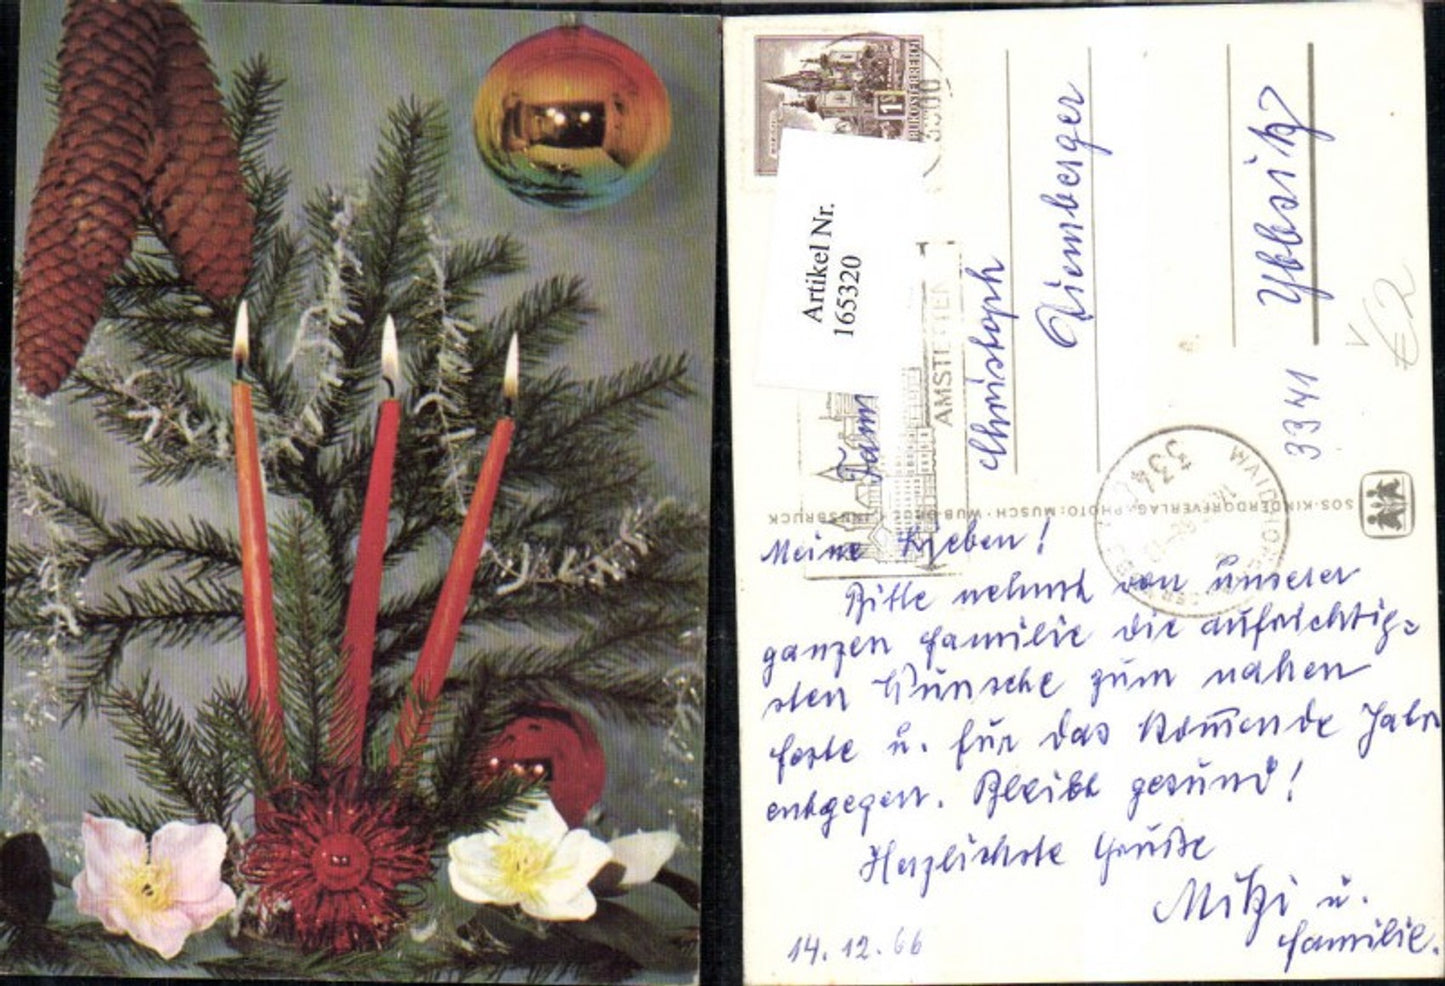 Meine Lieben!
Bitte nehmt von unserer
ganzen Familie die aufrichtig=
sten Wünsche zum nahen
Feste u. für das Kommende Jahr
entgegen. Bleibt gesund!
Herzlichste Grüße
Mitzi u.
Familie.
14.12.66
Fam
Christoph
Diemberger
Ybbsitz
3341
€2
Artikel Nr.
165320
REPUBLIK ÖSTERREICH
1S
AMSTETTEN
SOS-KINDERDORFVERLAG · PHOTO: MUSCH · WUB-DRUCK · INNSBRUCK